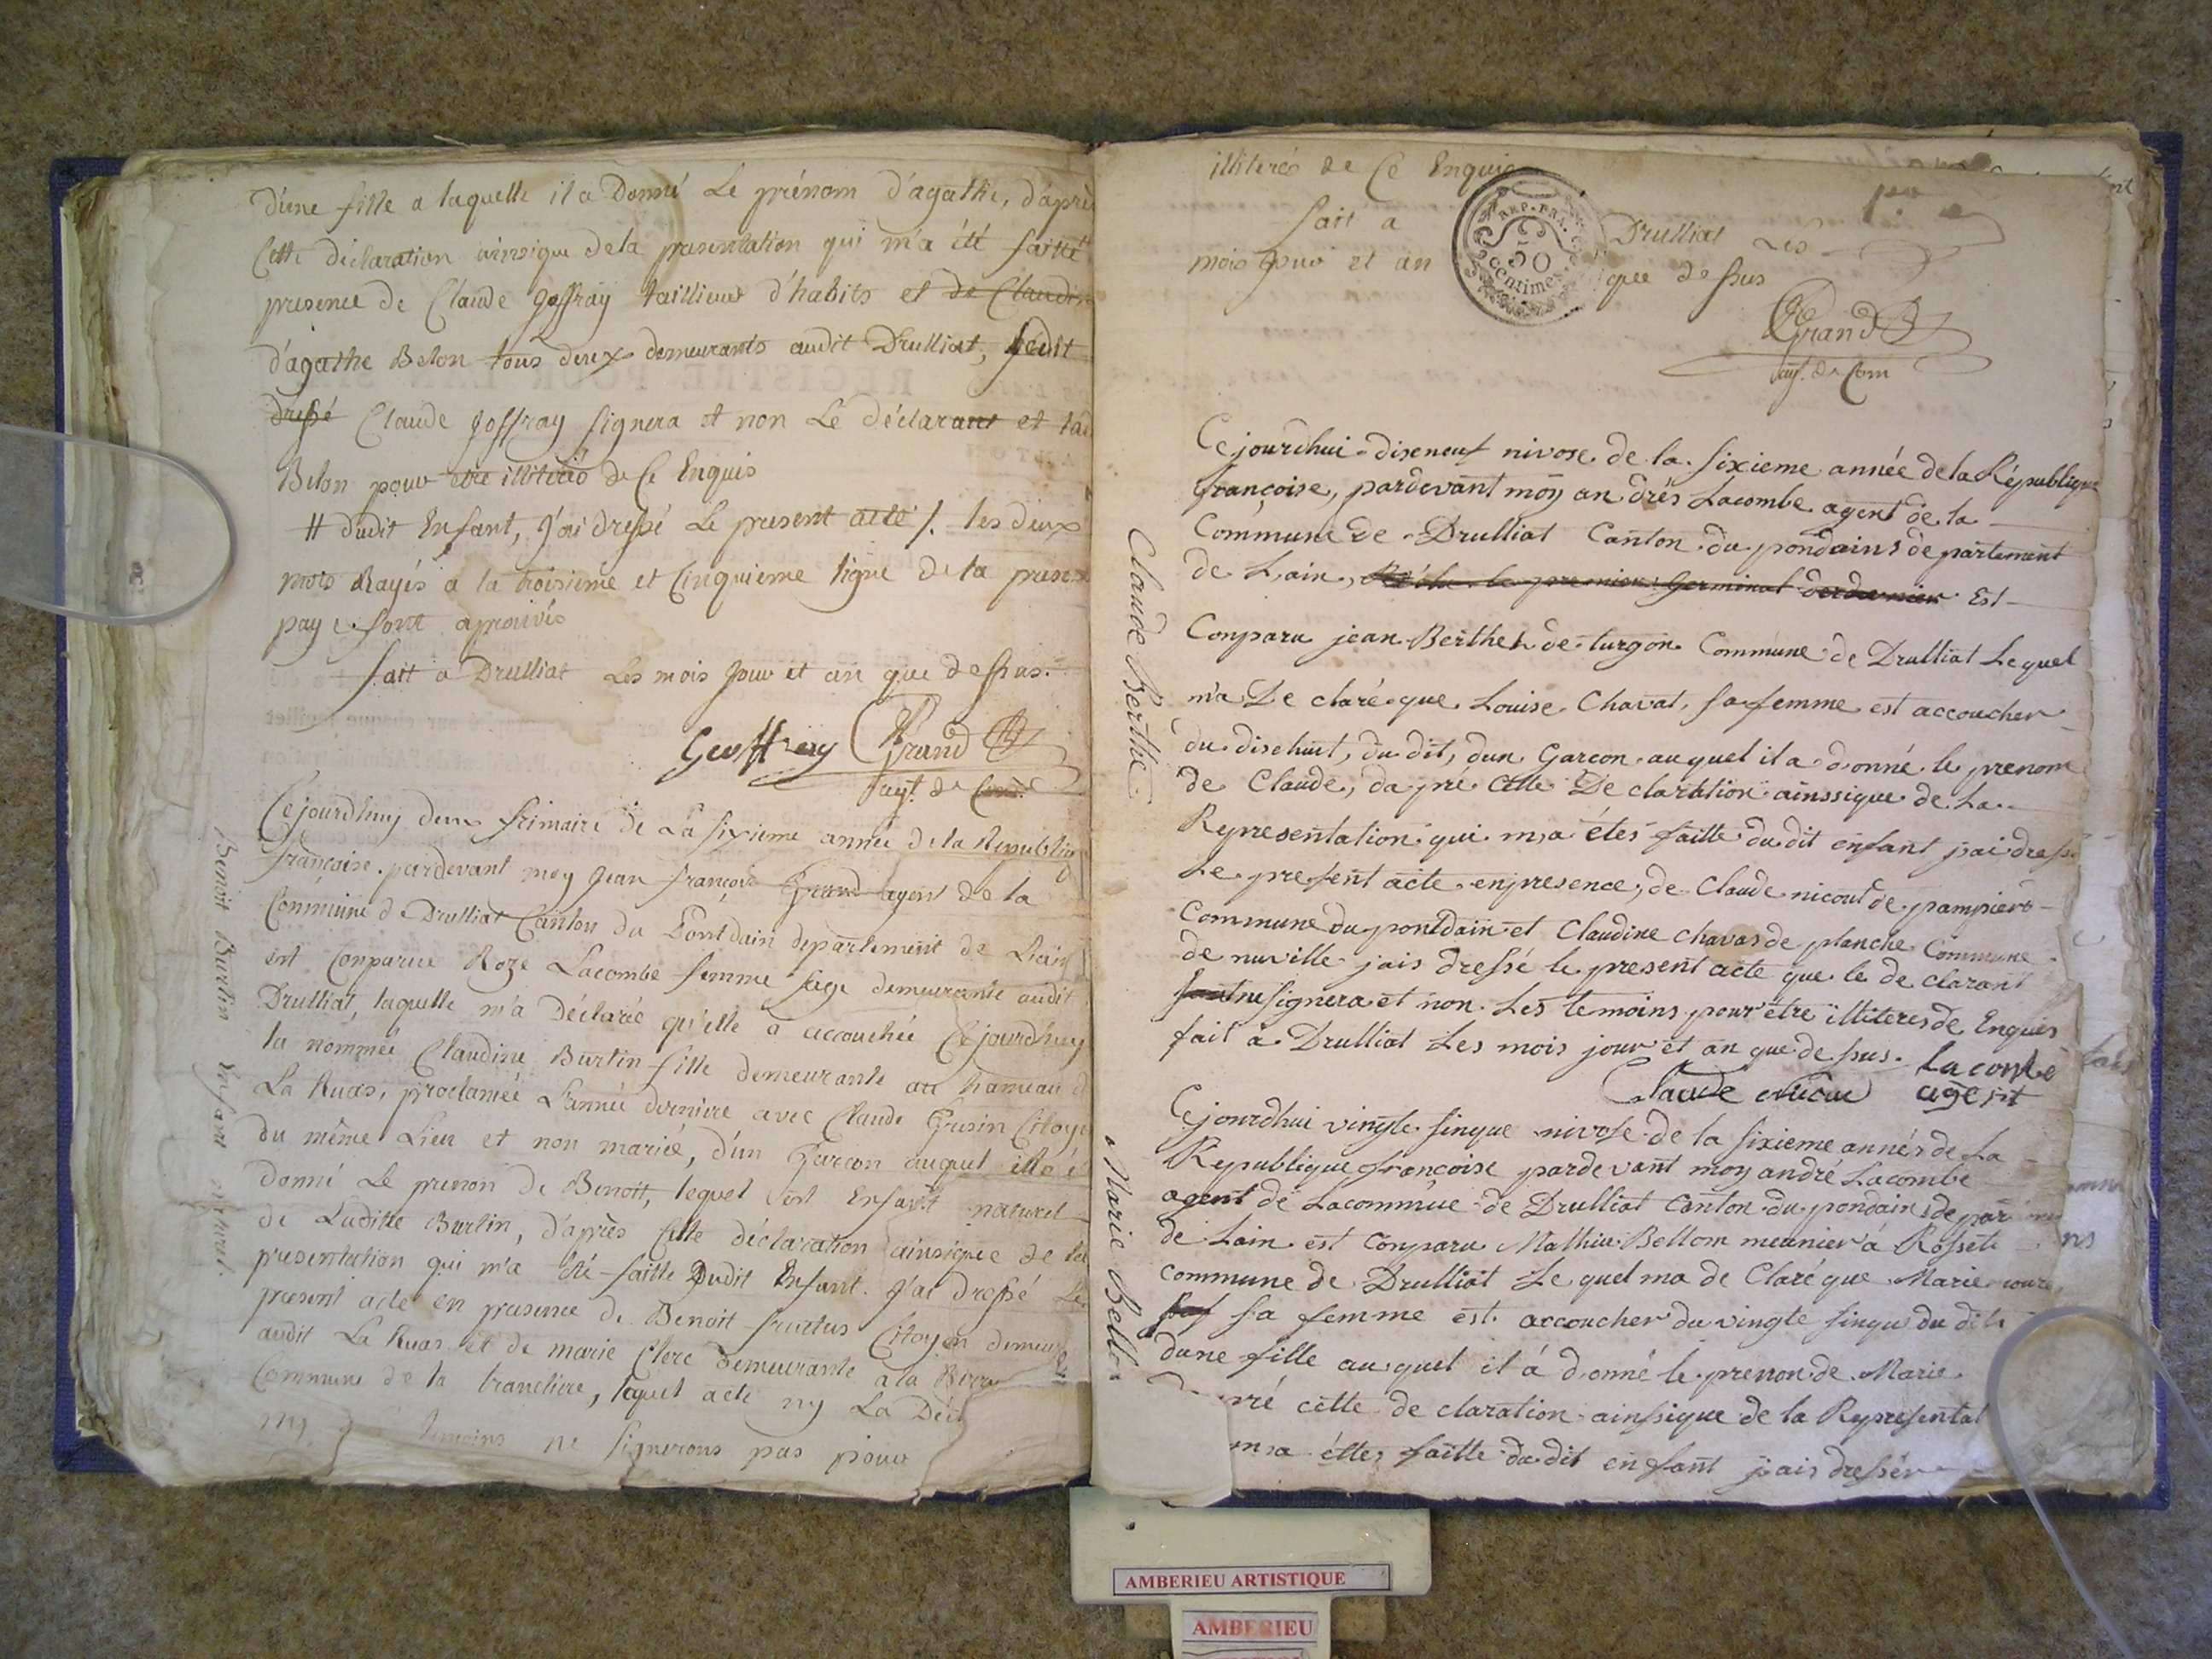 d'une fille a laquelle il a Donné Le prénom d'agathe, d'après
Cette déclaration ainsique dela presentation qui m'a été faitte
presence de Claude Joffray taillieur d'habits et de Claudine
d'agathe Belon tous deux demeurants audit Drulliat, ledit
dressé Claude Joffray signera et non Le déclarant et lad
Belon pour être illiterés de Ce Enquis
# dudit Enfant, J'ai dressé Le present acte /. les deux
mots Rayés a la troisieme et Cinquieme ligne de la presente
page sont aprouvés
fait a Drulliat Les mois Jour et an que dessus.
Geoffray Grand
agt. de Com
Cejourdhuy deux frimaire de La sixieme année de la Republique
françoise, pardevant moy Jean françois Grand agent de la
Commune de Drulliat Canton du Pontdain departement de Lain
est Conparue Roze Lacombe femme sage demeurante audit
Drulliat, laquelle m'a Déclaré qu'elle a accouchée Cejourdhuy
la nommée Claudine Burtin fille demeurante au hameau de
La Ruas, proclamée L'année derniere avec Claude Grisin Citoyen
du même Lieu et non mariée, d'un Garcon auquel elle a
donné Le prenon de Benoit, lequel est Enfant naturel
de Laditte Burtin, d'après Cette déclaration ainsique de la
presentation qui m'a été faitte Dudit Enfant. J'ai dressé Le
present acte en presence de Benoit fructus Citoyen demeurant
audit La Ruas et de marie Clerc demeurante a la
Commune de la tranclière, lequel acte ny La Décl
ny temoins ne signerons pas pour
Benoit Burtin Enfant naturel.
illiterés de Ce Enquis
fait a Drulliat Les
mois Jour et an que dessus
REP. FRA.
50
centimes
Grand
agt. de Com
Cejourdhui diseneuf nivose de la sixieme année de la République
françoise, pardevant moy andrés Lacombe agent de la
Commune de Drulliat Canton du pondains departement
de Lain, le premier Germinal Est
Conparu jean Berthet de turgon Commune de Drulliat Lequel
m'a De claré que Louise Chavat, sa femme est accoucher
du disehuit, du dit, dun Garcon auquel il a donné le prenom
de Claude, da pre Cette De claration ainssique de La
Representation qui m,a étés faitte du dit enfant jai dressé
Le present acte enpresence, de Claude nicout de pampiers
Commune du pontdain et Claudine chavas de planche Commune
de nuville jais dressé le present acte que le de clarant
ne signera et non Les temoins pour être illiteres de Enquis
fait à Drulliat Les mois jour et an que de sus. Lacombe
Claude nicou agent
Cejourdhui vingte sinque nivose de la sixieme années de La
Republique françoise pardevant moy andré Lacombe
agent de Lacommue de Drulliat Canton du pondains depar
de Lain est Conparu Mathieu Bellom meunier à Rosset
commune de Drulliat Le quel ma de Claré que Marie
sa femme est accoucher du vingte sinque du dit
dune fille auquel il à donné le prenon de Marie
pré cette de claration ainsique de la Representat
m,a étte, faitte du dit enfant jais dressér
Claude Berthet
Marie Bellom
AMBERIEU ARTISTIQUE
AMBERIEU